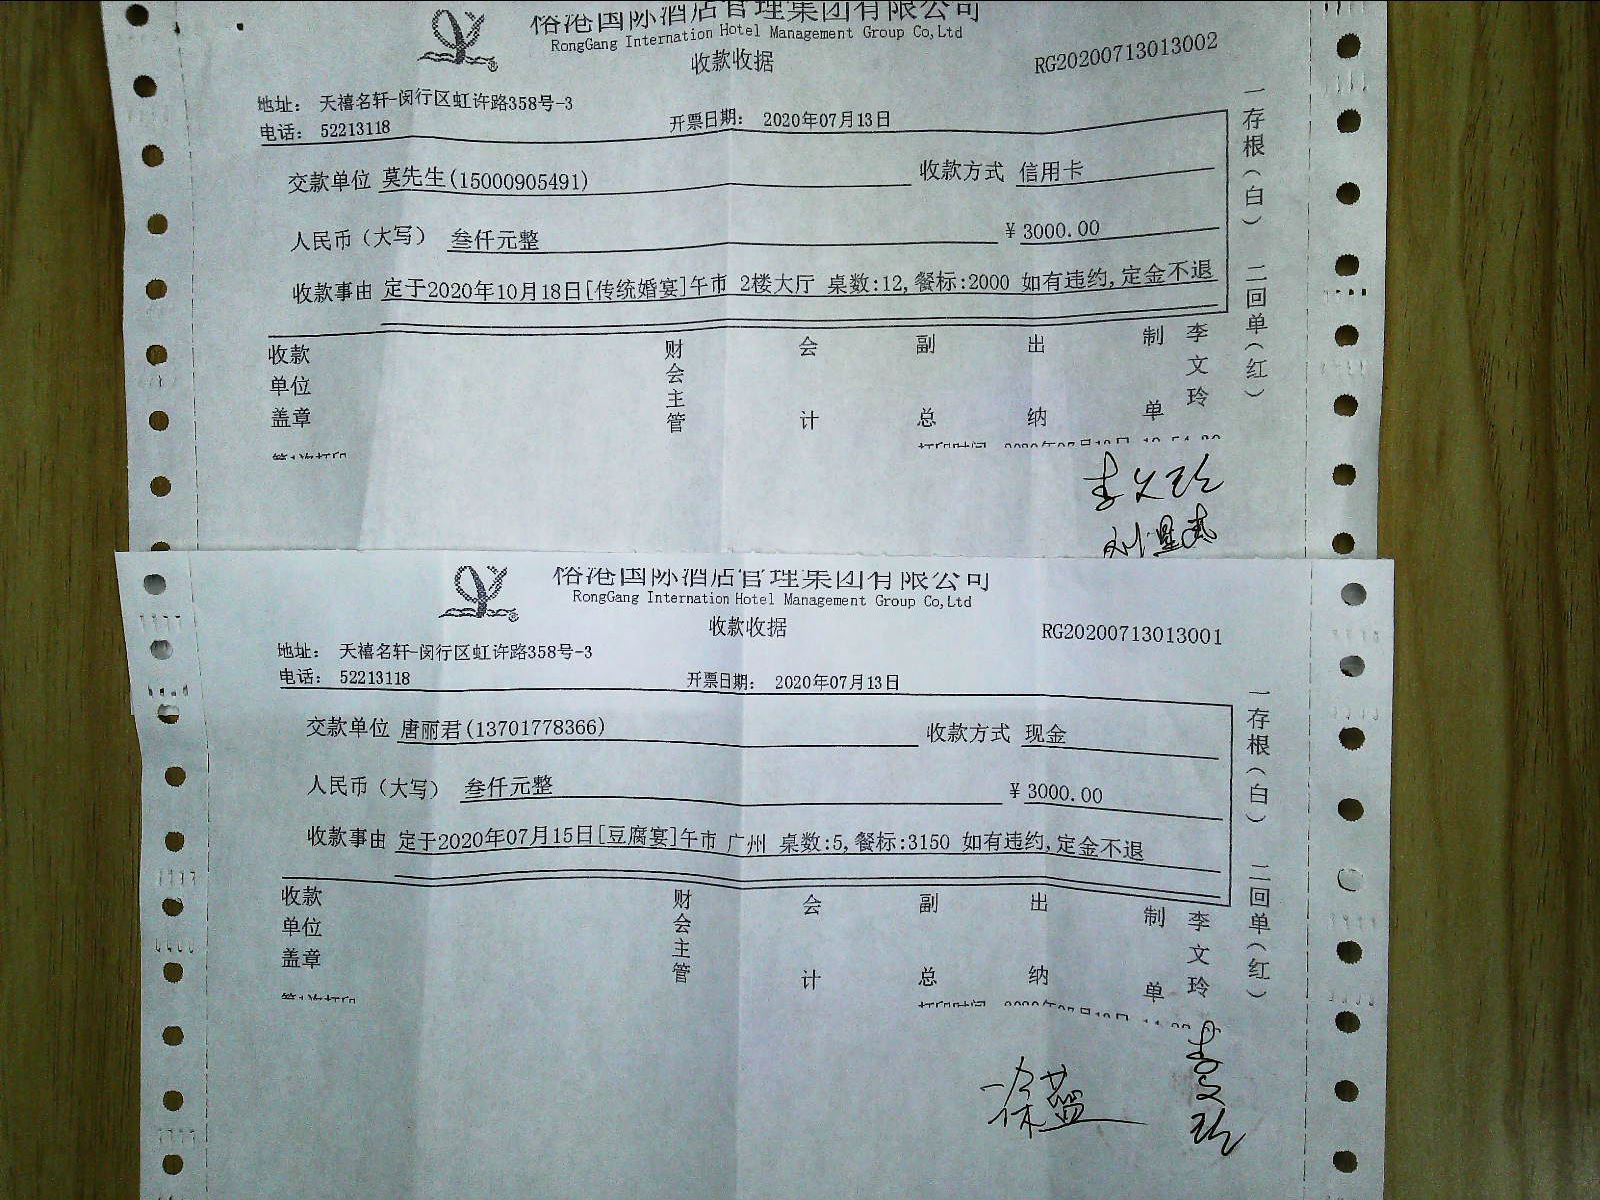 榕港国际酒店管理集团有限公司
RongGang Internation Hotel Management Group Co,Ltd
收款收据
RG20200713013002
地址： 天禧名轩-闵行区虹许路358号-3
电话： 52213118
开票日期： 2020年07月13日
交款单位 莫先生(15000905491) 收款方式 信用卡
人民币（大写） 叁仟元整 ¥3000.00
收款事由 定于2020年10月18日[传统婚宴]午市 2楼大厅 桌数:12,餐标:2000 如有违约,定金不退
一存根（白） 二回单（红）
收款单位盖章 财会主管 会计 副总 出纳 制单 李文玲
第1次打印
李文玲
榕港国际酒店管理集团有限公司
RongGang Internation Hotel Management Group Co,Ltd
收款收据
RG20200713013001
地址： 天禧名轩-闵行区虹许路358号-3
电话： 52213118
开票日期： 2020年07月13日
交款单位 唐丽君(13701778366) 收款方式 现金
人民币（大写） 叁仟元整 ¥3000.00
收款事由 定于2020年07月15日[豆腐宴]午市 广州 桌数:5,餐标:3150 如有违约,定金不退
一存根（白） 二回单（红）
收款单位盖章 财会主管 会计 副总 出纳 制单 李文玲
第1次打印
李文玲